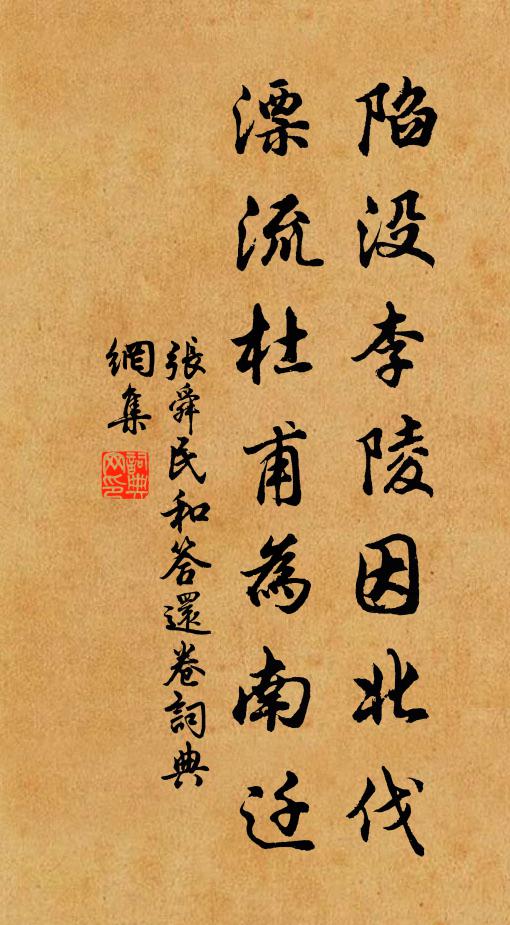 陷没李陵因北伐
漂流杜甫為南迁
張舜民和答還卷詞典
網集
詞典
网印